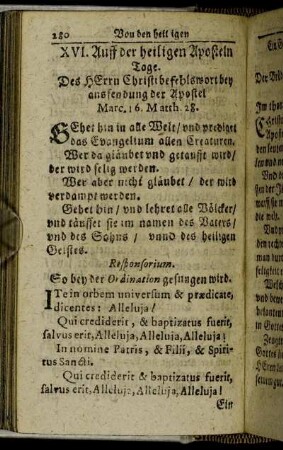 280 Von den heiligen
XVI. Auff der heiligen Aposteln
Tage.
Des HErrn Christi befehlswort bey
aussendung der Apostel
Marc. 16. Matth. 28.
GEhet hin in alle Welt/ vnd prediget
das Evangelium allen Creaturen.
Wer da gläubet vnd getaufft wird/
der wird selig werden.
Wer aber nicht gläubet/ der wird
verdampt werden.
Gehet hin/ vnd lehret alle Völcker/
vnd täuffet sie im namen des Vaters/
vnd des Sohns/ vnnd des heiligen
Geistes.
Responsorium.
So bey der Ordination gesungen wird.
ITe in orbem universum & prædicate,
dicentes: Alleluja!
Qui crediderit, & baptizatus fuerit,
salvus erit, Alleluja, Alleluja, Alleluja!
In nomine Patris, & Filii, & Spiri-
tus Sancti.
Qui crediderit & baptizatus fuerit,
salvus erit, Alleluja, Alleluja, Alleluja!
Ein